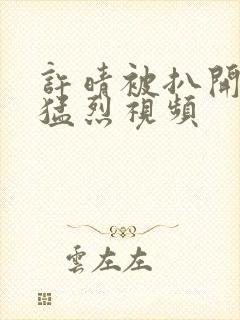 許晴被扒開
猛烈視頻
雲左左